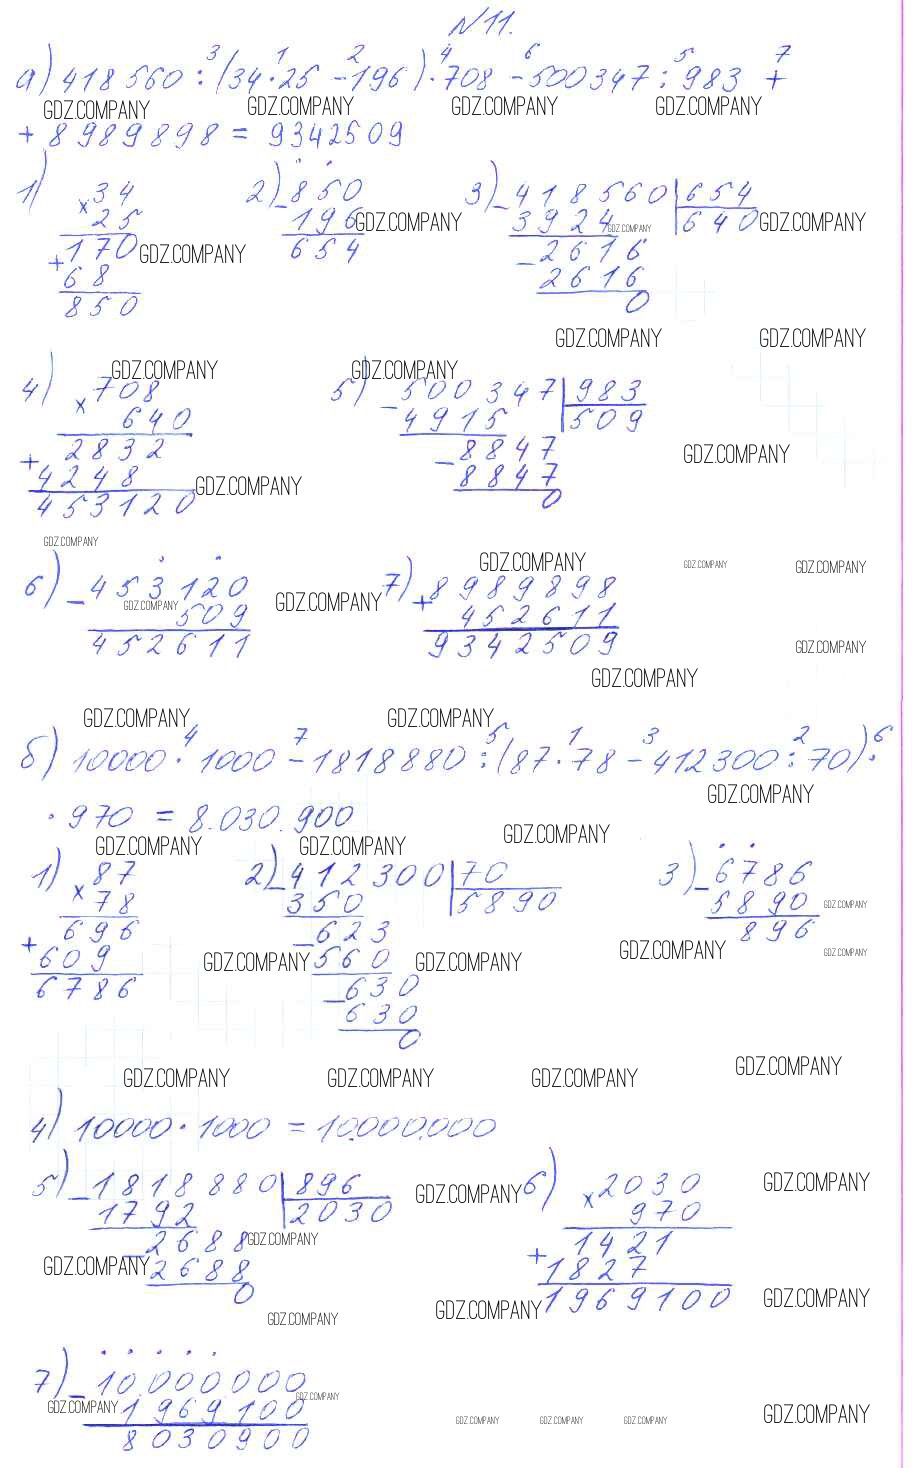 №11.
3 1 2 4 6 5 7
а) 418 560 : (34 · 25 - 196) · 708 - 500347 : 983 +
GDZ.COMPANY GDZ.COMPANY GDZ.COMPANY GDZ.COMPANY
+ 8989898 = 9342509
1) × 34 2) - 850 3) - 418560 | 654
25 196 GDZ.COMPANY 3924 GDZ.COMPANY 640 GDZ.COMPANY
+ 170 GDZ.COMPANY 654 - 2616
68 2616
850 0
GDZ.COMPANY GDZ.COMPANY
GDZ.COMPANY GDZ.COMPANY
4) × 708 5) - 500347 | 983
640 4915 509
+ 2832 - 8847 GDZ.COMPANY
4248 GDZ.COMPANY 8847
453120 0
GDZ.COMPANY
GDZ.COMPANY GDZ.COMPANY GDZ.COMPANY
6) - 453120 7) + 8989898
GDZ.COMPANY 509 GDZ.COMPANY 452611
452611 9342509 GDZ.COMPANY
GDZ.COMPANY
GDZ.COMPANY GDZ.COMPANY
4 7 5 1 3 2 6
б) 10000 · 1000 - 1818880 : (87 · 78 - 412300 : 70) ·
GDZ.COMPANY
· 970 = 8.030.900
GDZ.COMPANY GDZ.COMPANY GDZ.COMPANY
1) × 87 2) - 412300 | 70 3) - 6786
78 350 5890 5890 GDZ.COMPANY
+ 696 - 623 896
609 GDZ.COMPANY 560 GDZ.COMPANY GDZ.COMPANY GDZ.COMPANY
6786 - 630
630
0
GDZ.COMPANY GDZ.COMPANY GDZ.COMPANY GDZ.COMPANY
4) 10000 · 1000 = 10.000.000
5) - 1818880 | 896 GDZ.COMPANY 6) × 2030 GDZ.COMPANY
1792 2030 970
- 2688 GDZ.COMPANY + 1421
GDZ.COMPANY 2688 1827
0 GDZ.COMPANY 1969100 GDZ.COMPANY
GDZ.COMPANY
7) - 10.000.000
GDZ.COMPANY 1969100 GDZ.COMPANY
8030900 GDZ.COMPANY GDZ.COMPANY GDZ.COMPANY GDZ.COMPANY